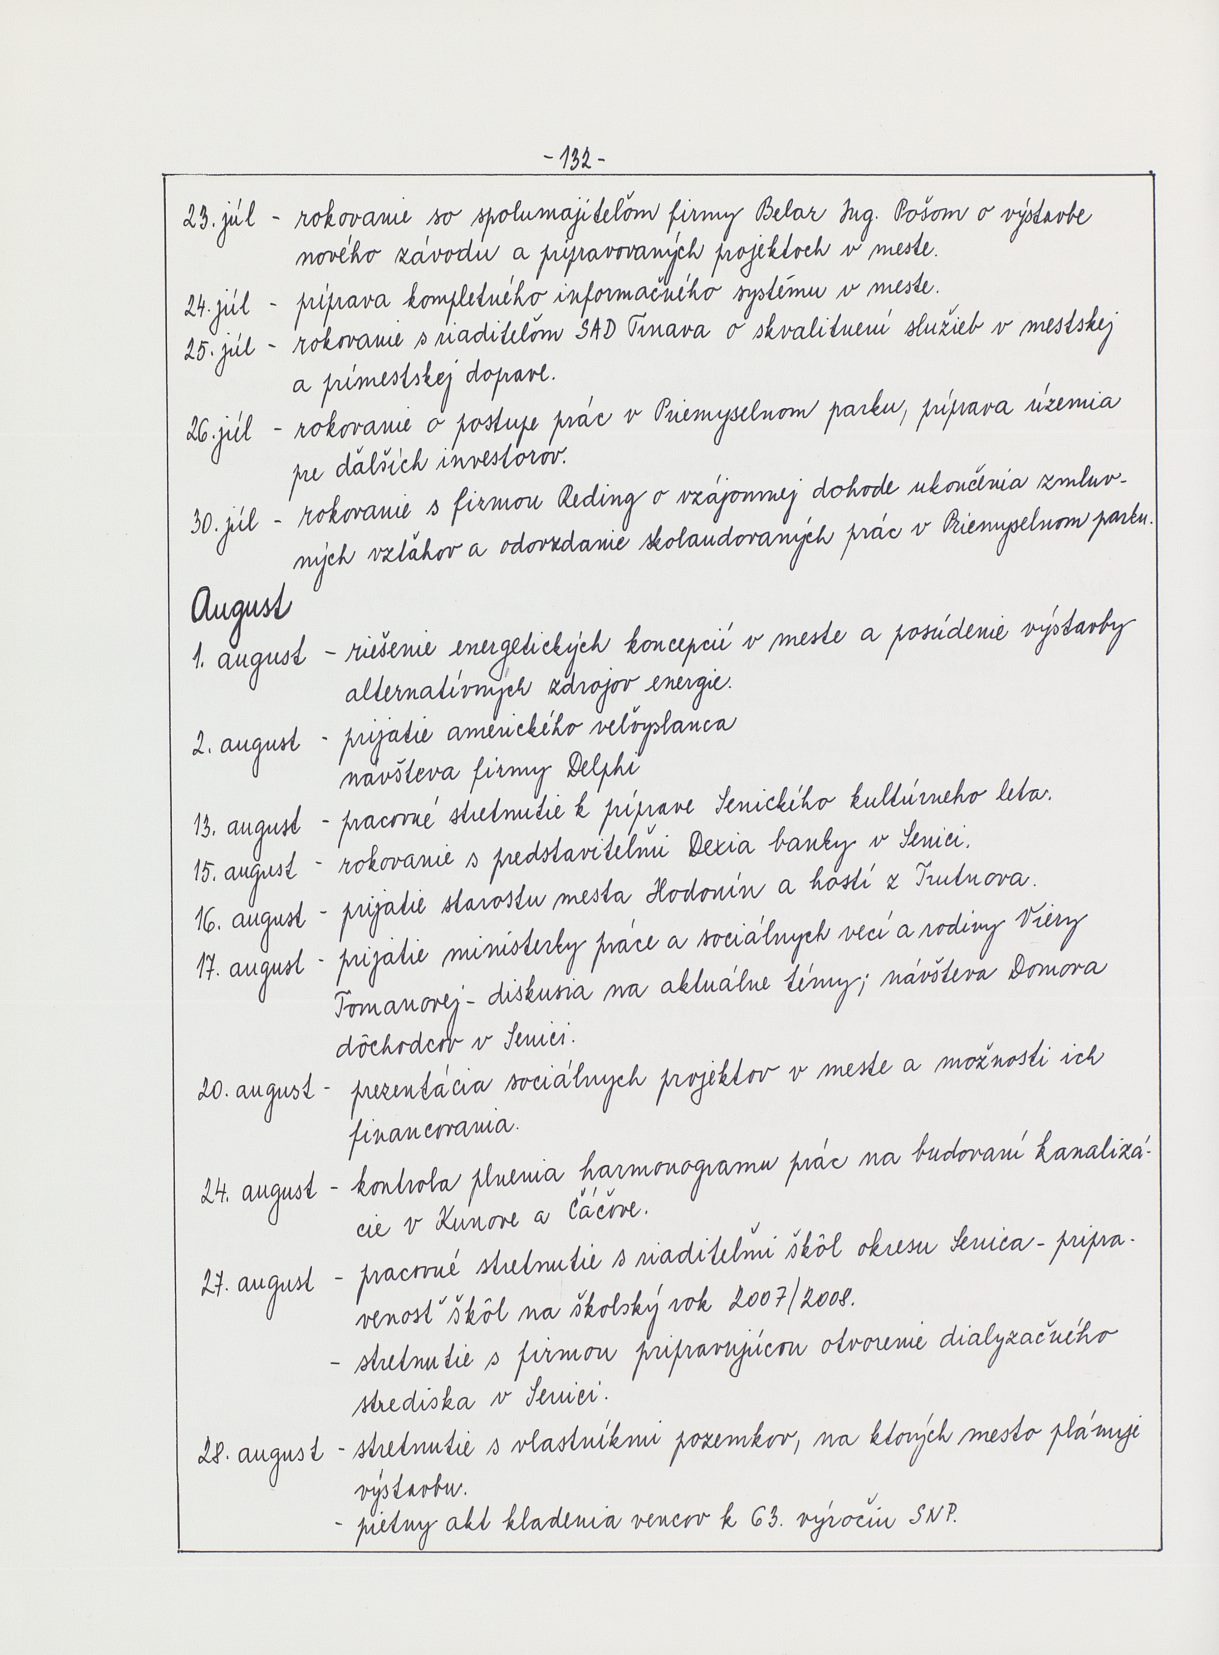 - 132 -
23. júl - rokovanie so spolumajiteľom firmy Belar Ing. Pošom o výstavbe
nového závodu a pripravovaných projektoch v meste.
24. júl - príprava kompletného informačného systému v meste.
25. júl - rokovanie s riaditeľom SAD Trnava o skvalitnení služieb v mestskej
a prímestskej doprave.
26. júl - rokovanie o postupe prác v Priemyselnom parku, príprava územia
pre ďalších investorov.
30. júl - rokovanie s firmou Reding o vzájomnej dohode ukončenia zmluv-
ných vzťahov a odovzdanie skolaudovaných prác v Priemyselnom parku.
August
1. august - riešenie energetických koncepcií v meste a posúdenie výstavby
alternatívnych zdrojov energie.
2. august - prijatie amerického veľvyslanca
návšteva firmy Delphi
13. august - pracovné stretnutie k príprave Senického kultúrneho leta.
15. august - rokovanie s predstaviteľmi Dexia banky v Senici.
16. august - prijatie starostu mesta Hodonín a hostí z Trutnova.
17. august - prijatie ministerky práce a sociálnych vecí a rodiny Viery
Tomanovej - diskusia na aktuálne témy; návšteva Domova
dôchodcov v Senici.
20. august - prezentácia sociálnych projektov v meste a možnosti ich
financovania.
24. august - kontrola plnenia harmonogramu prác na budovaní kanalizá-
cie v Kunove a Čáčove.
27. august - pracovné stretnutie s riaditeľmi škôl okresu Senica - pripra-
venosť škôl na školský rok 2007/2008.
- stretnutie s firmou pripravujúcou otvorenie dialyzačného
strediska v Senici.
28. august - stretnutie s vlastníkmi pozemkov, na ktorých mesto plánuje
výstavbu.
- pietny akt kladenia vencov k 63. výročiu SNP.